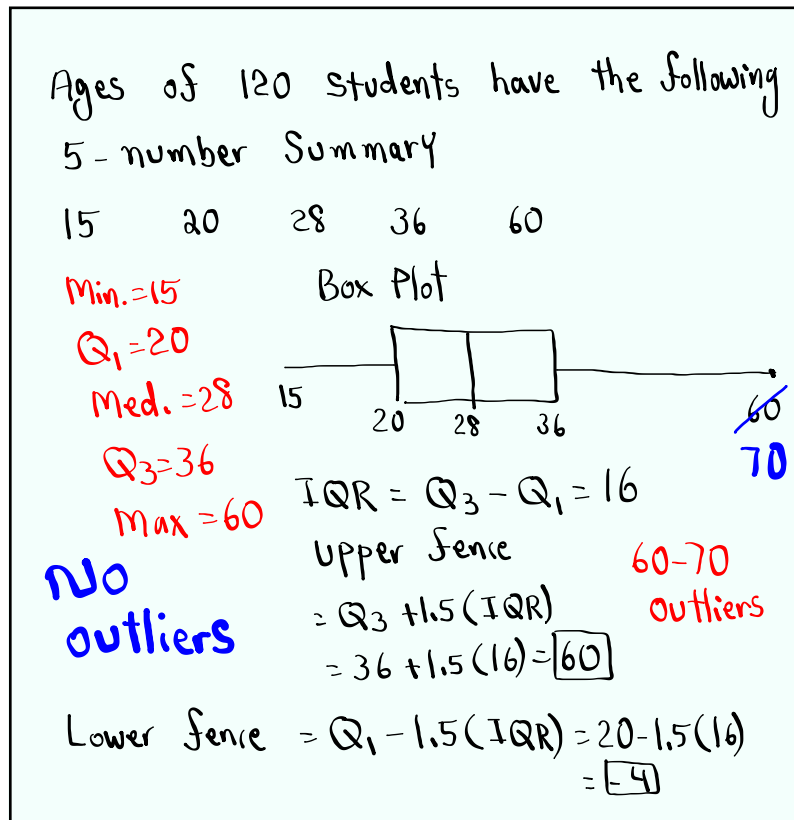 Ages of 120 students have the following
5-number Summary
15 20 28 36 60
Min.=15
Q₁=20
Med.=28
Q₃=36
Max=60
Box Plot
15 20 28 36 60
70
IQR = Q₃ - Q₁ = 16
Upper fence
= Q₃ +1.5(IQR)
= 36 +1.5(16)=60
60-70
outliers
No
outliers
Lower fence = Q₁ -1.5(IQR) = 20-1.5(16)
= -4